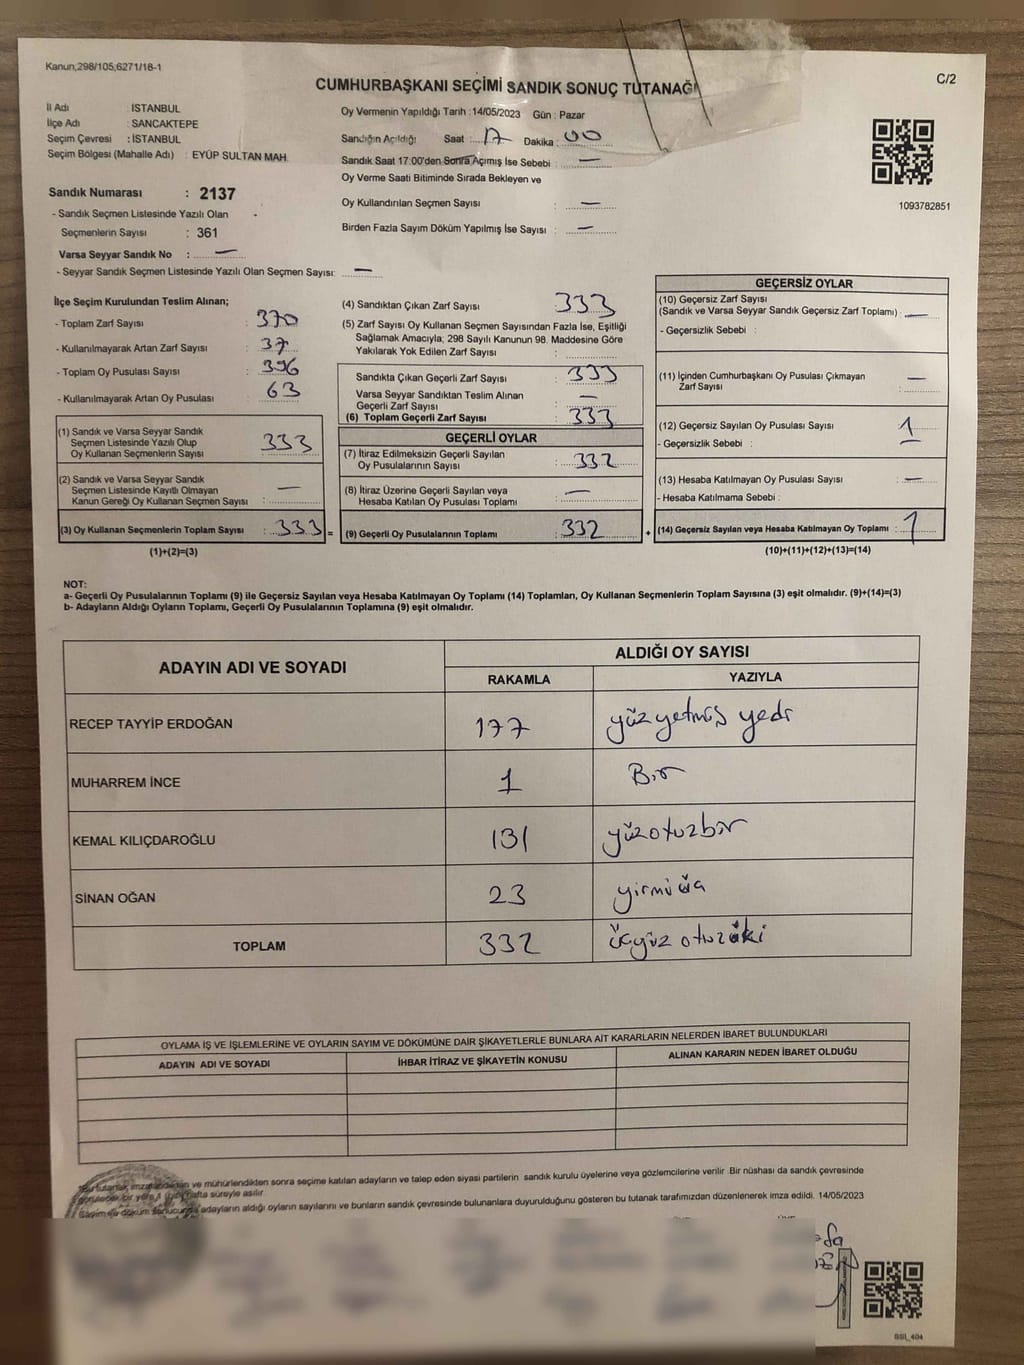 Kanun,298/105;6271/18-1
C/2
CUMHURBAŞKANI SEÇİMİ SANDIK SONUÇ TUTANAĞI
İl Adı : İSTANBUL
İlçe Adı : SANCAKTEPE
Seçim Çevresi : İSTANBUL
Seçim Bölgesi (Mahalle Adı) : EYÜP SULTAN MAH.
Sandık Numarası : 2137
- Sandık Seçmen Listesinde Yazılı Olan
Seçmenlerin Sayısı : 361
Varsa Seyyar Sandık No : —
- Seyyar Sandık Seçmen Listesinde Yazılı Olan Seçmen Sayısı: —
Oy Vermenin Yapıldığı Tarih :14/05/2023 Gün : Pazar
Sandığın Açıldığı Saat : 17 Dakika : 00
Sandık Saat 17:00'den Sonra Açımış İse Sebebi : —
Oy Verme Saati Bitiminde Sırada Bekleyen ve
Oy Kullandırılan Seçmen Sayısı : —
Birden Fazla Sayım Döküm Yapılmış İse Sayısı : —
1093782851
İlçe Seçim Kurulundan Teslim Alınan;
- Toplam Zarf Sayısı : 370
- Kullanılmayarak Artan Zarf Sayısı : 37
- Toplam Oy Pusulası Sayısı : 396
- Kullanılmayarak Artan Oy Pusulası : 63
(1) Sandık ve Varsa Seyyar Sandık
Seçmen Listesinde Yazılı Olup
Oy Kullanan Seçmenlerin Sayısı : 333
(2) Sandık ve Varsa Seyyar Sandık
Seçmen Listesinde Kayıtlı Olmayan
Kanun Gereği Oy Kullanan Seçmen Sayısı : —
(3) Oy Kullanan Seçmenlerin Toplam Sayısı : 333 =
(1)+(2)=(3)
(4) Sandıktan Çıkan Zarf Sayısı : 333
(5) Zarf Sayısı Oy Kullanan Seçmen Sayısından Fazla İse, Eşitliği
Sağlamak Amacıyla; 298 Sayılı Kanunun 98. Maddesine Göre
Yakılarak Yok Edilen Zarf Sayısı :
Sandıkta Çıkan Geçerli Zarf Sayısı : 333
Varsa Seyyar Sandıktan Teslim Alınan
Geçerli Zarf Sayısı : —
(6) Toplam Geçerli Zarf Sayısı : 333
GEÇERLİ OYLAR
(7) İtiraz Edilmeksizin Geçerli Sayılan
Oy Pusulalarının Sayısı : 332
(8) İtiraz Üzerine Geçerli Sayılan veya
Hesaba Katılan Oy Pusulası Toplamı : —
(9) Geçerli Oy Pusulalarının Toplamı : 332 +
GEÇERSİZ OYLAR
(10) Geçersiz Zarf Sayısı
(Sandık ve Varsa Seyyar Sandık Geçersiz Zarf Toplamı) : —
- Geçersizlik Sebebi :
(11) İçinden Cumhurbaşkanı Oy Pusulası Çıkmayan
Zarf Sayısı : —
(12) Geçersiz Sayılan Oy Pusulası Sayısı : 1
- Geçersizlik Sebebi :
(13) Hesaba Katılmayan Oy Pusulası Sayısı : —
- Hesaba Katılmama Sebebi :
(14) Geçersiz Sayılan veya Hesaba Katılmayan Oy Toplamı : 1
(10)+(11)+(12)+(13)=(14)
NOT:
a- Geçerli Oy Pusulalarının Toplamı (9) ile Geçersiz Sayılan veya Hesaba Katılmayan Oy Toplamı (14) Toplamları, Oy Kullanan Seçmenlerin Toplam Sayısına (3) eşit olmalıdır. (9)+(14)=(3)
b- Adayların Aldığı Oyların Toplamı, Geçerli Oy Pusulalarının Toplamına (9) eşit olmalıdır.
ADAYIN ADI VE SOYADI
ALDIĞI OY SAYISI
RAKAMLA YAZIYLA
RECEP TAYYİP ERDOĞAN 177 yüzyetmiş yedi
MUHARREM İNCE 1 Bir
KEMAL KILIÇDAROĞLU 131 yüzotuzbir
SİNAN OĞAN 23 yirmi
TOPLAM 332 üçyüz otuziki
OYLAMA İŞ VE İŞLEMLERİNE VE OYLARIN SAYIM VE DÖKÜMÜNE DAİR ŞİKAYETLERLE BUNLARA AİT KARARLARIN NELERDEN İBARET BULUNDUKLARI
ADAYIN ADI VE SOYADI İHBAR İTİRAZ VE ŞİKAYETİN KONUSU ALINAN KARARIN NEDEN İBARET OLDUĞU
*Bu tutanak, imzalandıktan ve mühürlendikten sonra seçime katılan adayların ve talep eden siyasi partilerin sandık kurulu üyelerine veya gözlemcilerine verilir. Bir nüshası da sandık çevresinde
görülecek bir yere 1 (bir) hafta süreyle asılır.
Sayım ve döküm sonucunda adayların aldığı oyların sayılarını ve bunların sandık çevresinde bulunanlara duyurulduğunu gösteren bu tutanak tarafımızdan düzenlenerek imza edildi. 14/05/2023